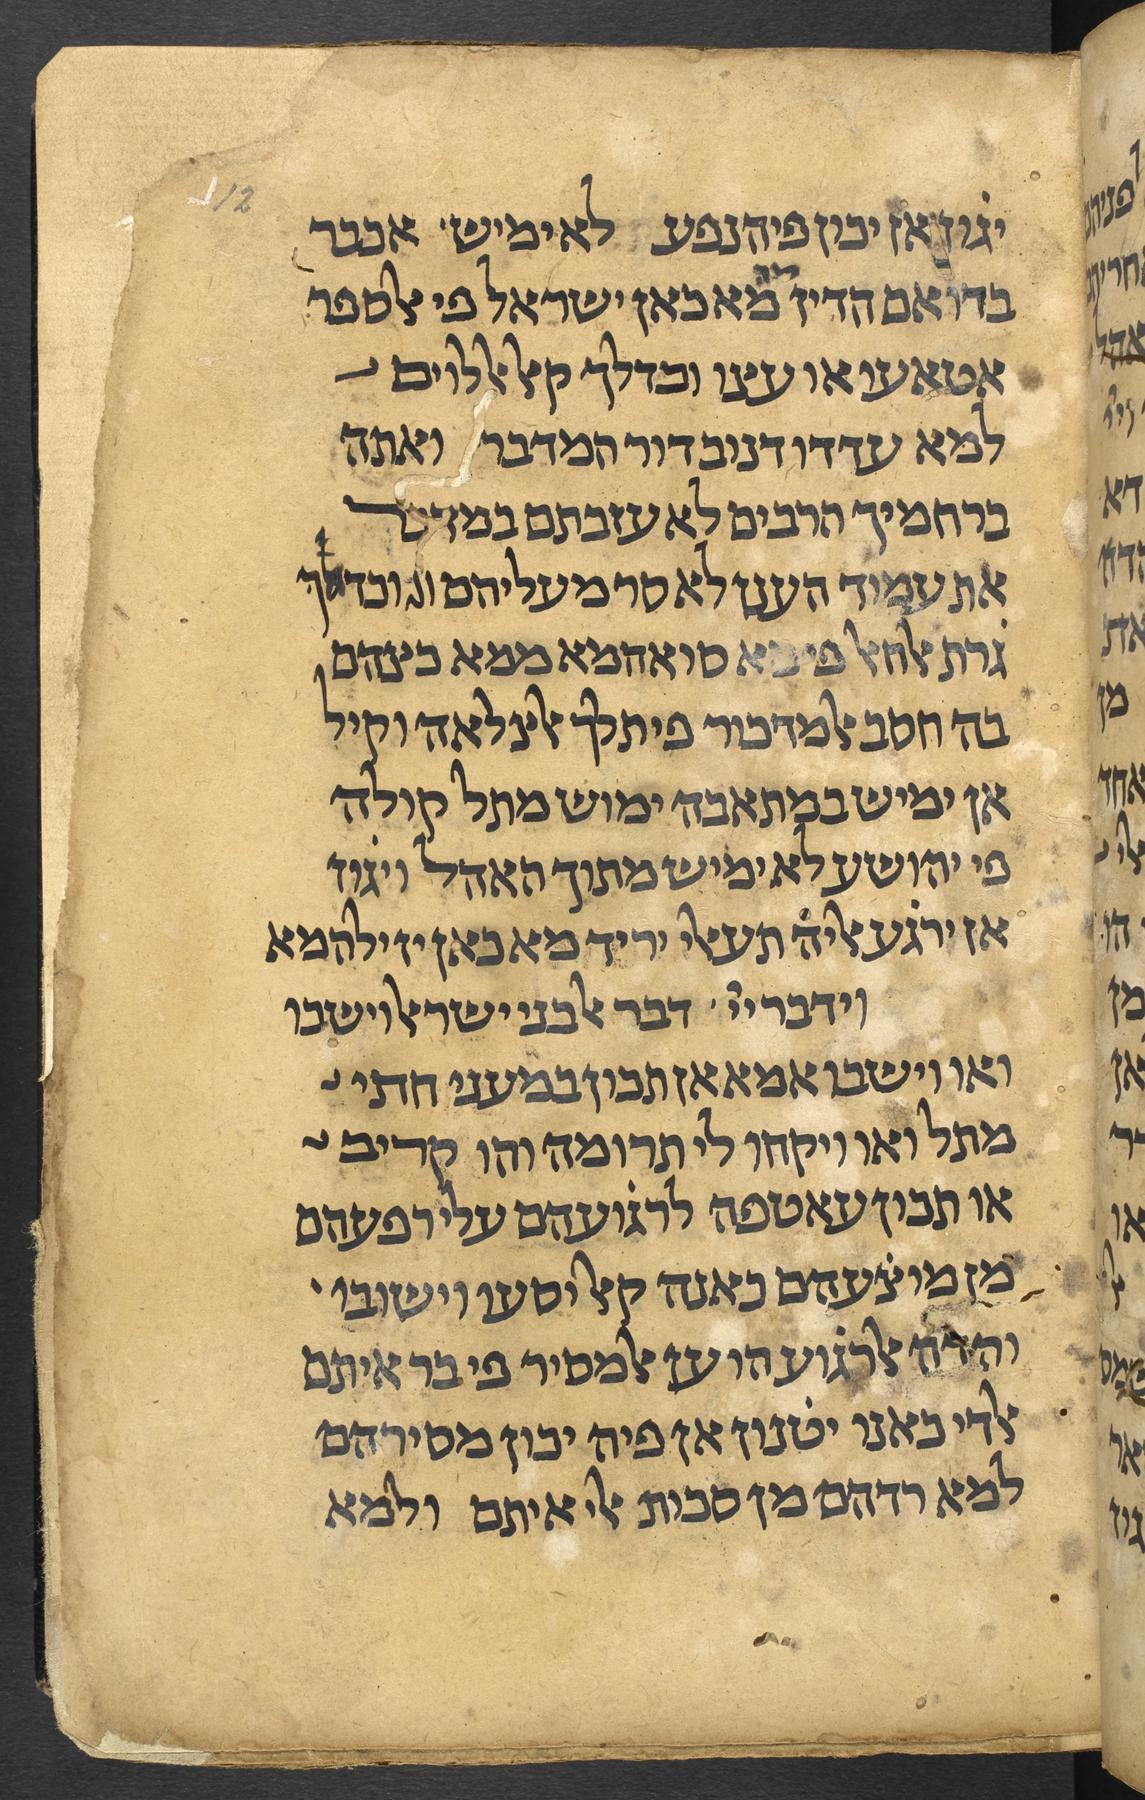 12
יגׄוז אן יכון פיה נפע לא ימיש׳ אכבר
בדואם הדין מא כאן ישראל פי אלספר
אטאעו או עצו וכדלך קאל אללוים
למא עדדו דנוב דור המדבר ואתה
ברחמיך הרבים לא עזבתם במדבר
את עמוד הענן לא סר מעליהם וג׳ וכדלך
גׄרת אלחאל פי סואהמא ממא כצהם
בה חסב אלמדכור פי תלך אלצלאה וקיל
אן ימיש במתאבה ימוש מתל קולה
פי יהושע לא ימיש מתוך האהל ויגׄוז
אן ירגׄע אליה תעאלי יריד מא כאן יזילהמא
וידבר ייי׳ דבר אל בני ישראל וישבו
ואו וישבו אמא אן תכון במעני חתי
מתל ואו ויקחו לי תרומה והו קריב
או תכון עאטפה לרגׄועהם עלי רפעהם
מן מוצׄעהם כאנה קאל יסעו וישובו׳
והדא אלרגׄוע הו ען אלמסיר פי בר איתם
אלדי כאנו יטׄנון אן פיה יכון מסירהם
למא רדהם מן סכות אלי איתם ולמא